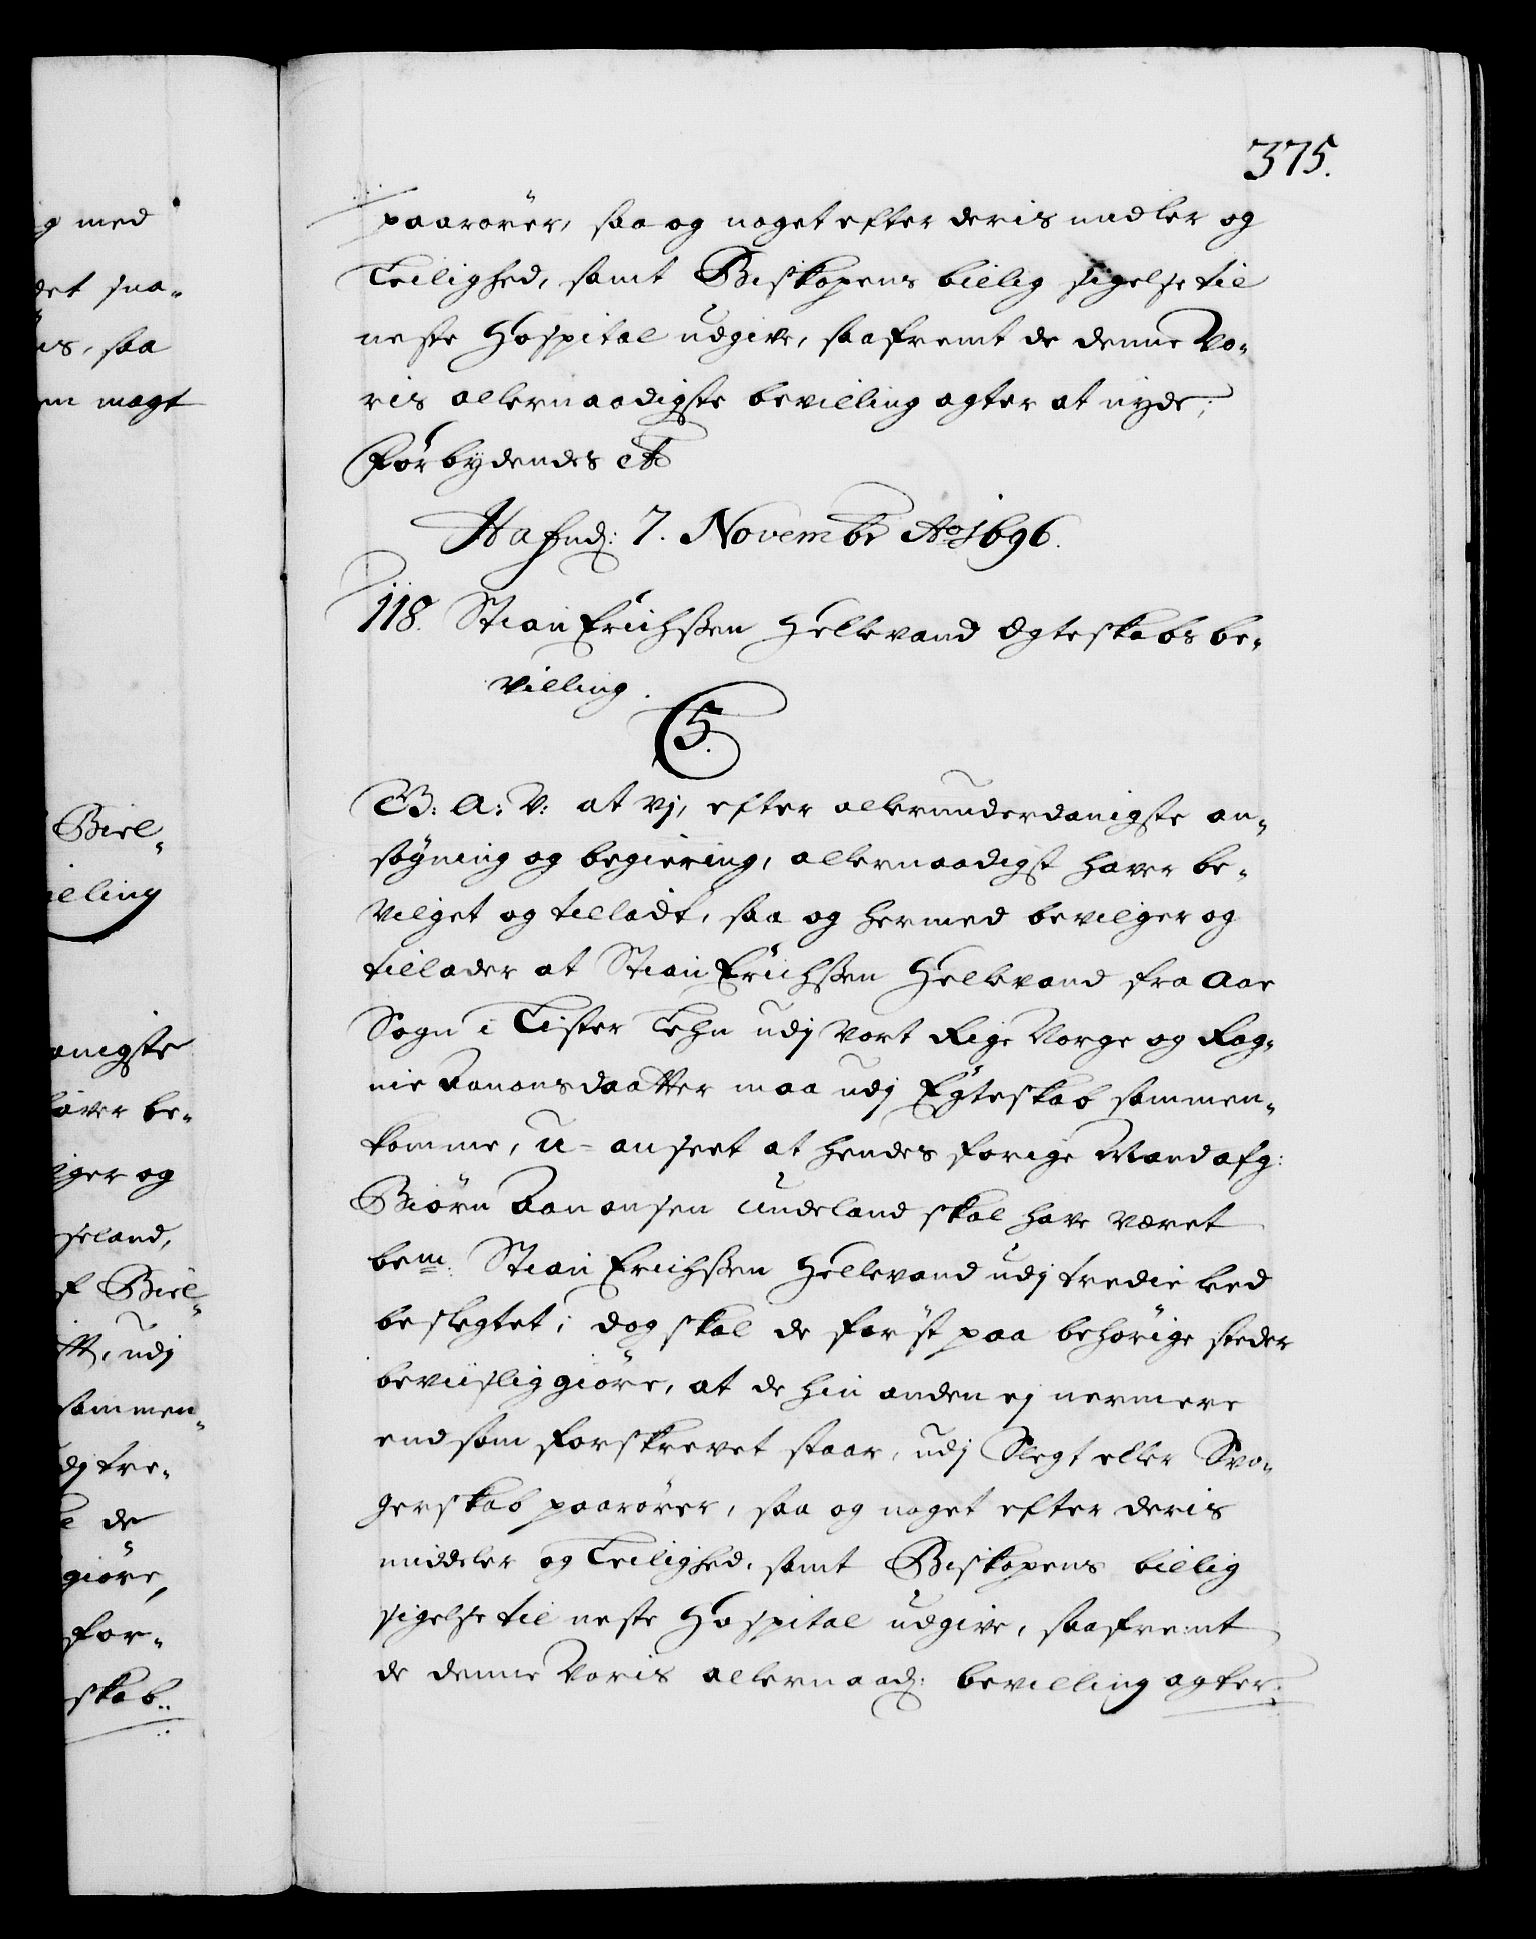 g med
det sna-
is, saa
em magt
Biel-
illing
anigste
haver be-
iger og
seland,
f Biel-
tt, udj
sammen-
dj tre-
l de
giöre,
for-
skab.
375.
paarörer, saa og noget efter deris midler og
Leilighed, samt Biskopens billig sigelse til
neste Hospital udgive, saafremt de denne Vo-
ris allernaadigste bevilling agter at nyde;
Forbydendes etc
Hafnd: 7. Novembr Ao 1696.
118. Stian Erichssen Hellevand Ægteskabs be-
villing.
C5.
G: A: V: at vj, efter allerunderdanigste an-
søgning og begiering, allernaadigst haver be-
vilget og tilladt, saa og hermed bevilger og
tillader at Stian Erichssen Hellevand fra Aae
Sogn i Lister Lehn udj vort Rige Norge og Rag-
nie Aanonsdaatter maa udj Egteskab sammen-
komme, u-anseet at hendes forige Mand afg:
Biörn Aanonsen Undeland skal have været
bem: Stian Erichssen Hellevand udj tredie led
beslegtet; dog skal de först paa behörige steder
beviislig giöre, at de hin anden ej nermere
end som forskrevet staar, udj Slegt eller Svo-
gerskab paarörer, saa og noget efter deris
middeler og Leilighed, samt Biskopens billig
sigelse til neste Hospital udgive, saafremt
de denne Voris allernaad: bevilling agter